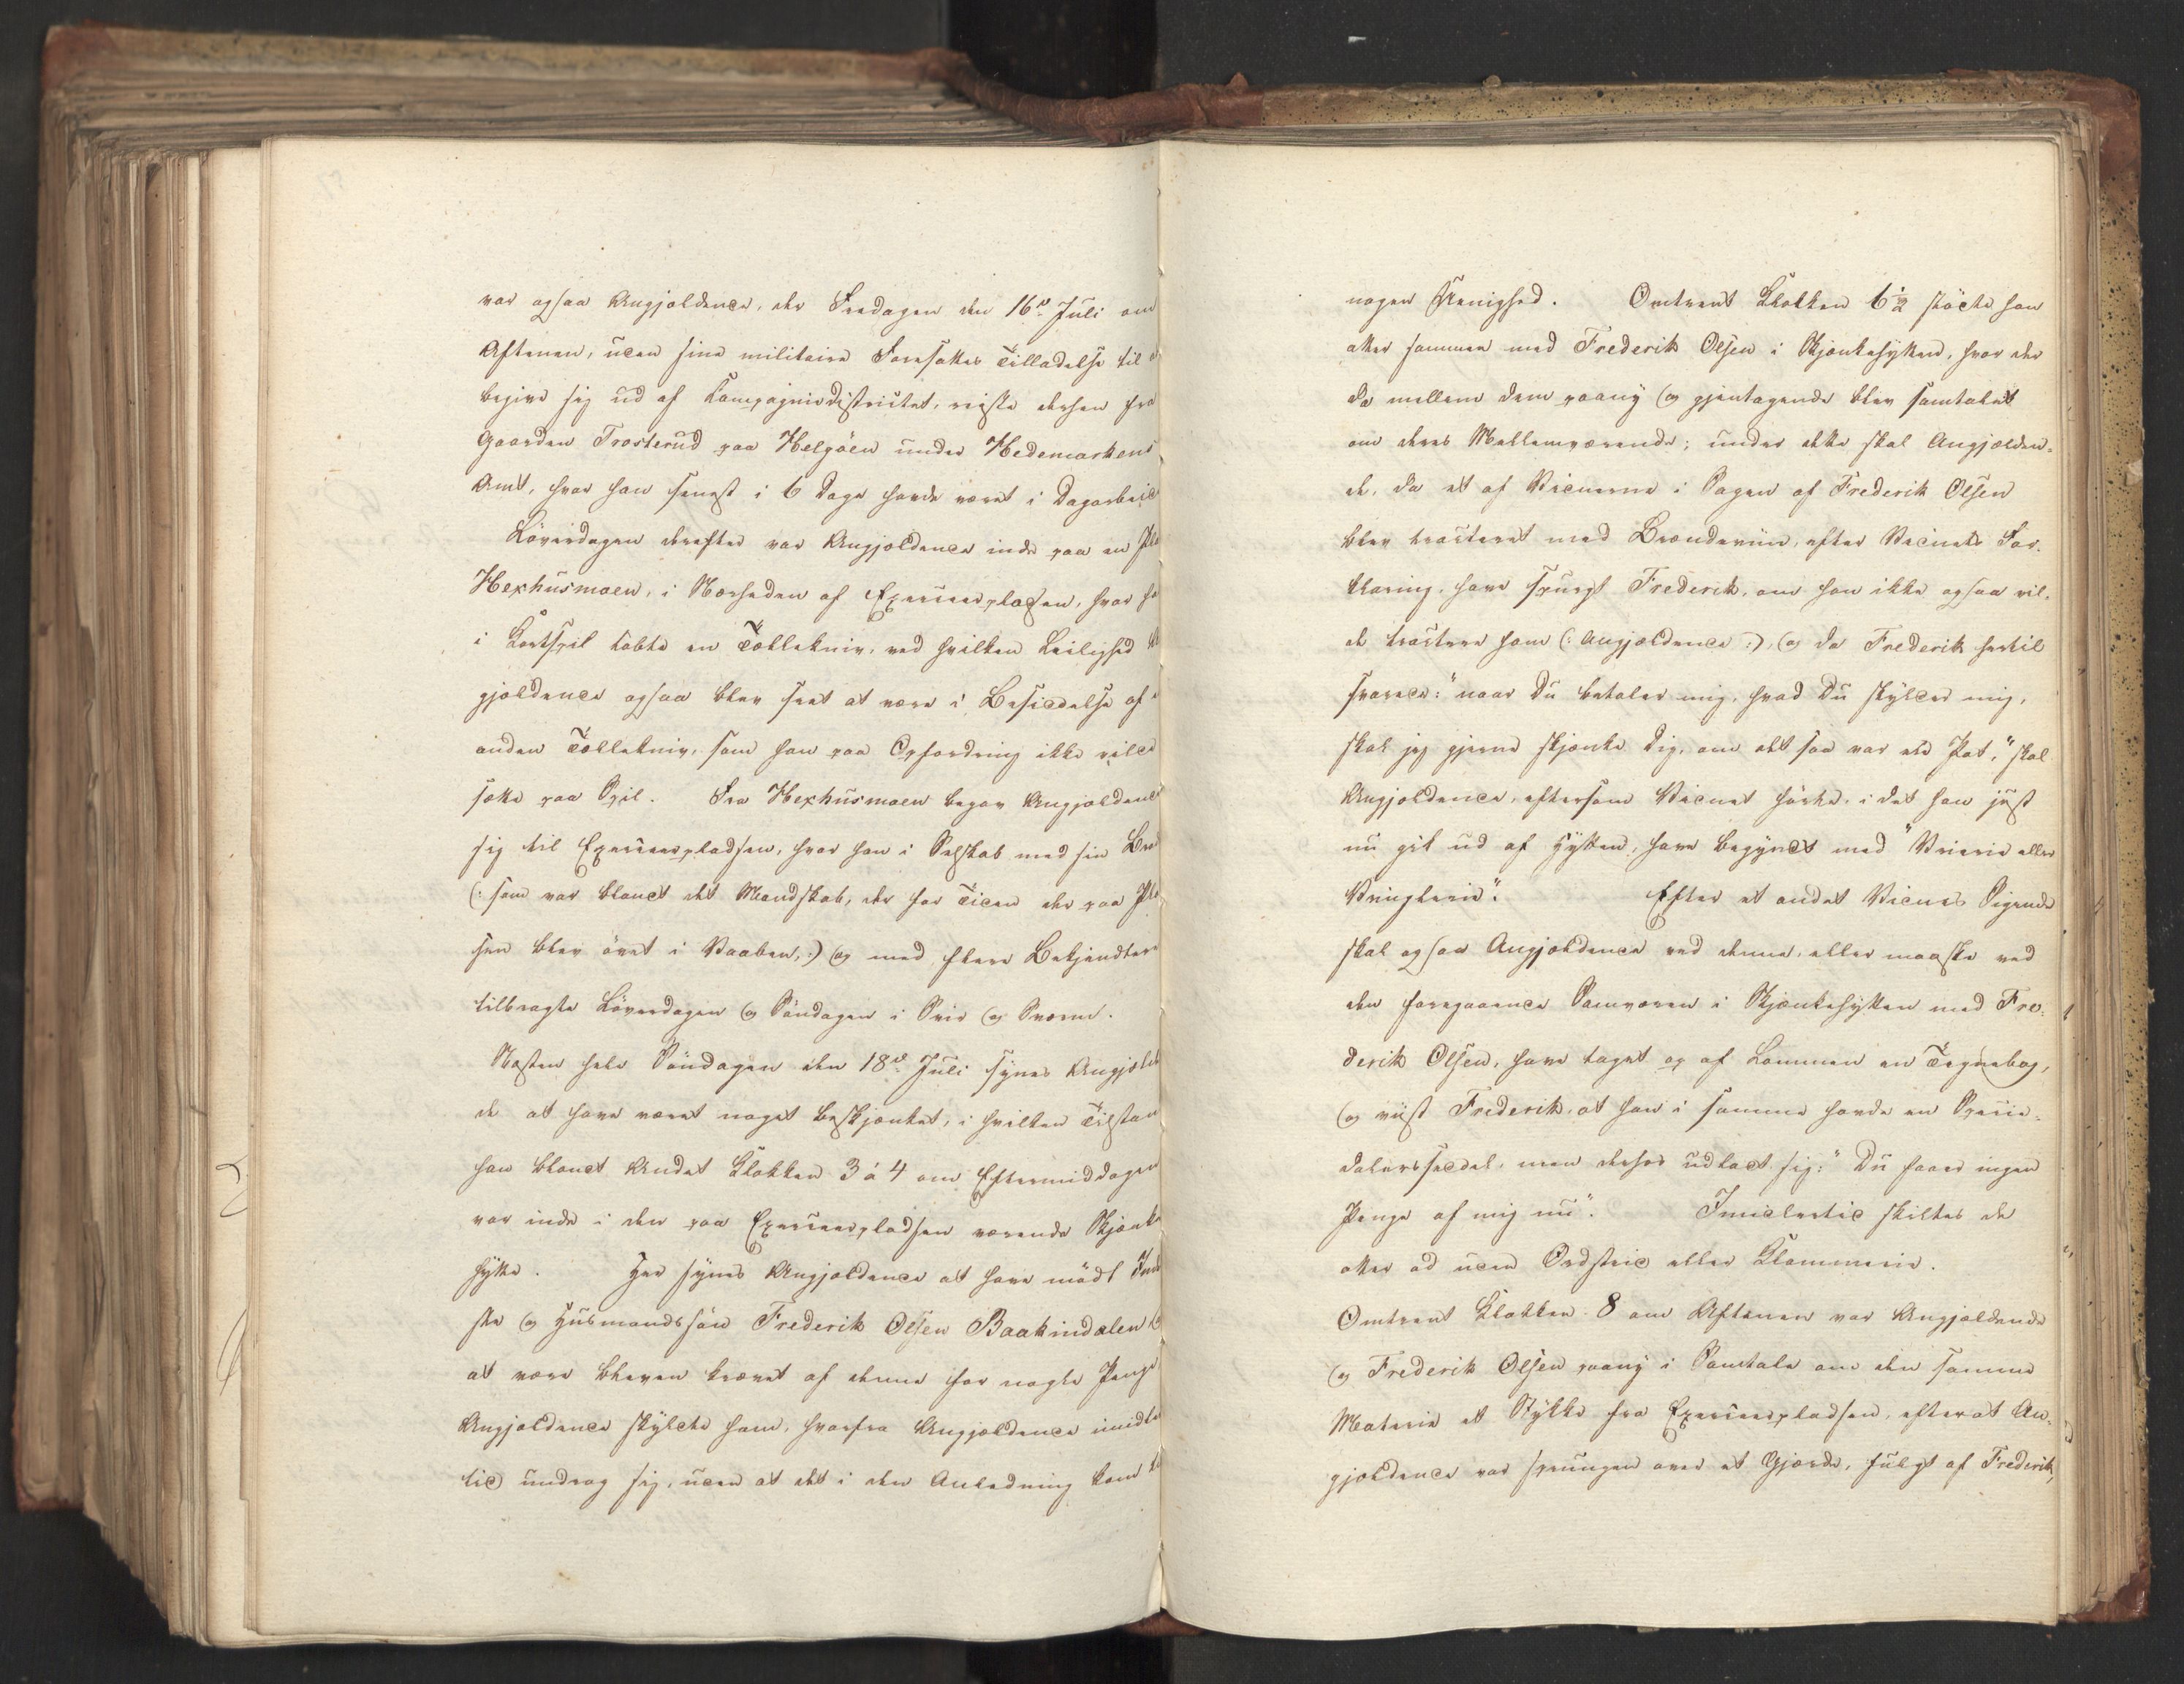 var ogsaa Angjældende, der Fredagen den 16de Juli om
Aftenen, uden sine militaire Foresattes Tilladelse til
begive sig ud af Compagniedistrictet, reiste dersen fra
Gaarden Trosterud paa Helgöen under Hedemarkens
Amt, hvor han senest i 6 Dage havde været i Dagarbeid
Löverdagen derefter var Angjældende inde paa en
Hexhusmoen, i Nærheden af Exerceerpladsen, hvor
i Kortspil tabte en Tollekniv, ved hvilken Leilighed
gjældende ogsaa blev seet at være i Besiddelse af
anden Tollekniv, som han paa Opfordring ikke vilde
sætte paa Spil. Fra Hexhusmoen begav Angjældende
sig til Exerceerpladsen, hvor han i Selskab med sin
(: som var blandt det Mandskab, der for Tiden der paa
sen blev övet i Vaaben, :) og med flere Bekjendtere
tilbragte Löverdagen og Söndagen i Sviir og Sværm.
Næsten hele Söndagen den 18de Juli synes Angjælden
de at have været noget beskjænket, i hvilken Tilstan
han blandt Andet Klokken 3 á 4 om Eftermiddagen
var inde i den paa Exerceerpladsen værende Skjænke
hytte. Her synes Angjældende at have mödt
ste og Huusmandssön Frederik Olsen Baakindalen
at være bleven krævet af denne for nogle Penge
Angjældende skyldte ham, hvorfra Angjældende imidler
tid undrog sig, uden at det i den Anledning kom
nogen Uenighed. Omtrent Klokken 6½ stödte han
atter sammen med Frederik Olsen i Skjænkehytten, hvor der
da mellem dem paany og gjentagende blev samtalet
om deres Mellemværende; under dette skal Angjælden-
de, da et af Vidnerne i Sagen af Frederik Olsen
blev tracteret med Brændeviin, efter Vidnets For-
klaring, have spurgt Frederik, om han ikke ogsaa vil-
de tractere ham (: Angjældende :), og da Frederik hertil
svarede: "naar Du betaler mig, hvad Du skylder mig,
skal jeg gjerne skjænke Dig, om det saa var en Pot," skal
Angjældende, eftersom Vidnet hörte, i det han just
nu gik ud af Hytten, have begyndt med "Vrierie eller
Vringlerie". Efter et andet Vidnes Sigende
skal ogsaa Angjældende ved denne, eller maaske ved
den foregaaende Samværen i Skjænkehytten med Fre-
derik Olsen, have taget op af Lommen en Tegnebog,
og viist Frederik, at han i samme havde en Specie-
dalersseddel, men derhos udladt sig: "Du faaer ingen
Penge af mig nu". Imidlertid skiltes de
atter ad uden Ordstrid eller Klammerie.
Omtrent Klokken 8 om Aftenen var Angjældende
og Frederik Olsen paany i Samtale om den samme
Materie et Stykke fra Exerceerpladsen, efterat An-
gjældende var sprungen over et Gjærde, fulgt af Frederik,